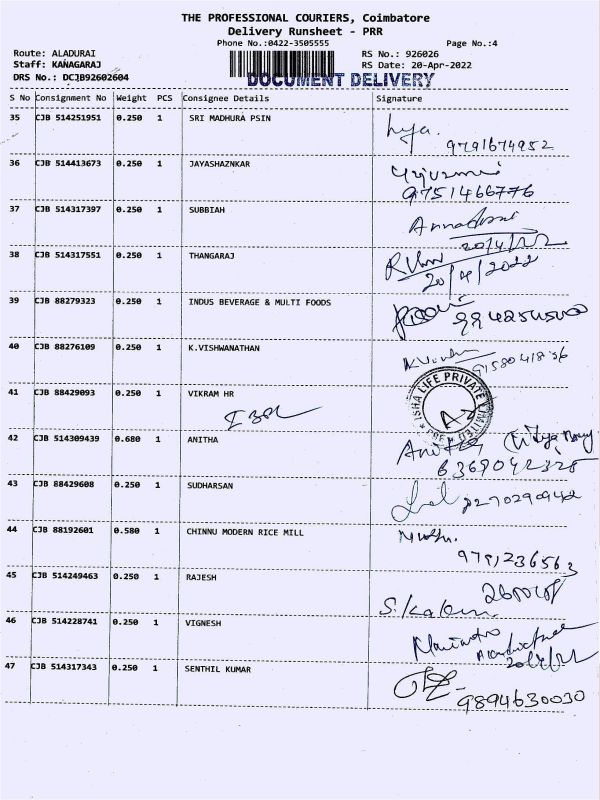 THE PROFESSIONAL COURIERS, Coimbatore
Delivery Runsheet - PRR
Phone No.:0422-3505555 Page No.:4
Route: ALADURAI RS No.: 926026
Staff: KANAGARAJ RS Date: 20-Apr-2022
DRS No.: DCJB92602604 DOCUMENT DELIVERY
S No Consignment No Weight PCS Consignee Details Signature
35 CJB 514251951 0.250 1 SRI MADHURA PSIN
9791674952
36 CJB 514413673 0.250 1 JAYASHAZNKAR
9751466776
37 CJB 514317397 0.250 1 SUBBIAH
20/4/22
38 CJB 514317551 0.250 1 THANGARAJ
20/4/2022
39 CJB 88279323 0.250 1 INDUS BEVERAGE & MULTI FOODS
40 CJB 88276109 0.250 1 K.VISHWANATHAN
41 CJB 88429093 0.250 1 VIKRAM HR
ISHA LIFE PRIVATE LIMITED
42 CJB 514309439 0.680 1 ANITHA
43 CJB 88429608 0.250 1 SUDHARSAN
44 CJB 88192601 0.580 1 CHINNU MODERN RICE MILL
9791236563
45 CJB 514249463 0.250 1 RAJESH
46 CJB 514228741 0.250 1 VIGNESH
20/4/22
47 CJB 514317343 0.250 1 SENTHIL KUMAR
9894630030